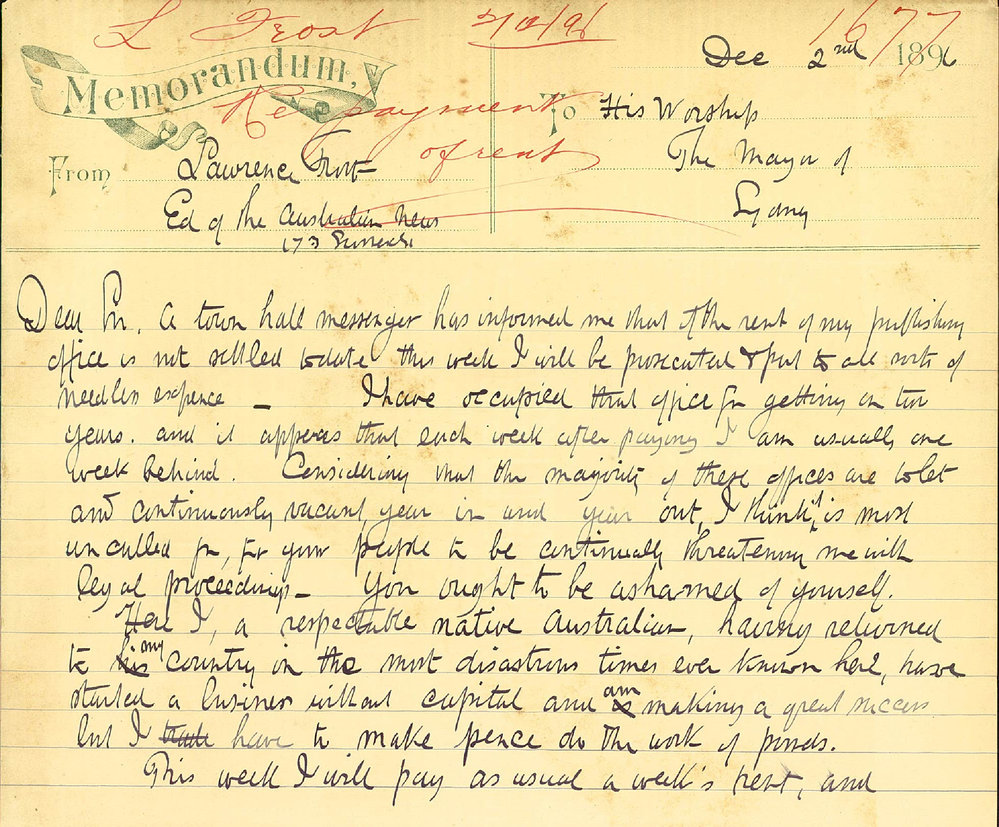 L Frost 2/12/96 1677
Dec 2nd 1896
Memorandum,
Re payment
of rent
To His Worship
The Mayor of
Sydney
From Lawrence Frost
Ed of the Australian News
173
Dear Sir, A town hall messenger has informed me that if the rent of my publishing
office is not settled to date this week I will be prosecuted & put to all sorts of
needless expence — I have occupied that office for getting on two
years. and it apperas that each week after paying I am usually one
week behind. Considering that the majority of these offices are to let
and continuously vacant year in and year out, I think it is most
uncalled for, for your people to be continually threatening me with
legal proceedings — You ought to be ashamed of yourself.
Here I, a respectable native Australian, having returned
to his my country in the most disastrous times ever known here, have
started a business without capital and is am making a great success
but I have to make pence do the work of pounds.
This week I will pay as usual a week's rent, and